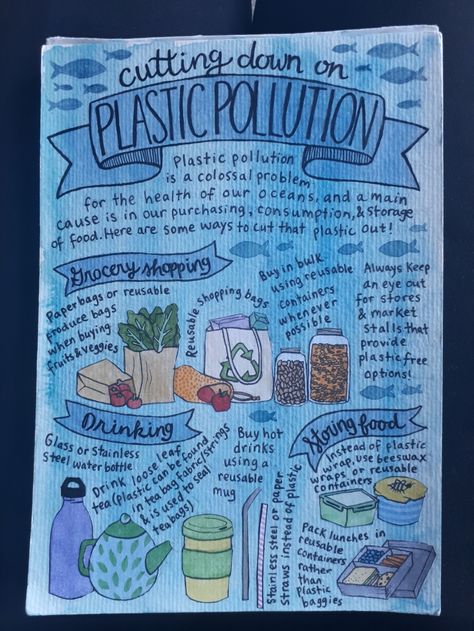 cutting down on
PLASTIC POLLUTION
Plastic pollution
is a colossal problem
for the health of our oceans, and a main
cause is in our purchasing, consumption, & storage
of food. Here are some ways to cut that plastic out!
Grocery shopping
Paper bags or reusable
produce bags
when buying
fruits & veggies
Reusable shopping bags
Buy in bulk
using reusable
containers
whenever
possible
Always keep
an eye out
for stores
& market
stalls that
provide
plastic free
options!
Drinking
Glass or Stainless
Steel water bottle
Drink loose leaf
tea (plastic can be found
in tea bag fabric/strings
& is used to seal
tea bags)
Buy hot
drinks
using a
reusable
mug
Stainless steel or paper
straws instead of plastic
Storing food
Instead of plastic
wrap, use beeswax
wraps or reusable
containers
Pack lunches in
reusable
containers
rather
than
plastic
baggies